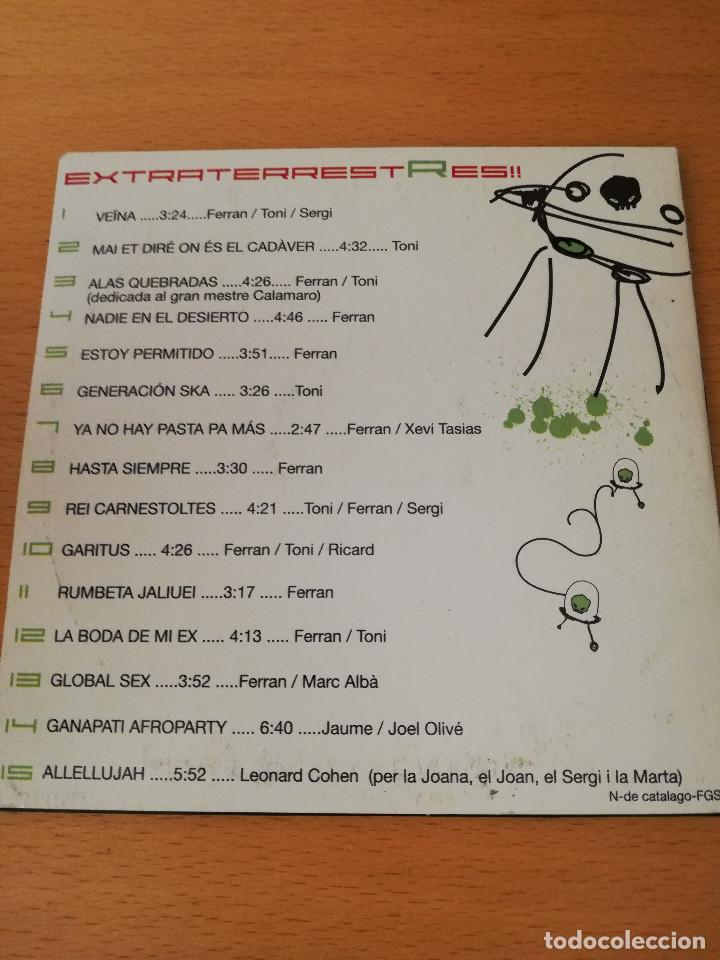 EXTRATERRESTRES!!
1 VEÏNA .....3:24.....Ferran / Toni / Sergi
2 MAI ET DIRÉ ON ÉS EL CADÀVER .....4:32..... Toni
3 ALAS QUEBRADAS .....4:26..... Ferran / Toni
(dedicada al gran mestre Calamaro)
4 NADIE EN EL DESIERTO .....4:46 ..... Ferran
5 ESTOY PERMITIDO .....3:51..... Ferran
6 GENERACIÓN SKA ..... 3:26 .....Toni
7 YA NO HAY PASTA PA MÁS .....2:47 .....Ferran / Xevi Tasias
8 HASTA SIEMPRE .....3:30 ..... Ferran
9 REI CARNESTOLTES ..... 4:21 .....Toni / Ferran / Sergi
10 GARITUS ..... 4:26 ..... Ferran / Toni / Ricard
11 RUMBETA JALIUEI .....3:17 ..... Ferran
12 LA BODA DE MI EX ..... 4:13 ..... Ferran / Toni
13 GLOBAL SEX .....3:52 .....Ferran / Marc Albà
14 GANAPATI AFROPARTY ..... 6:40 .....Jaume / Joel Olivé
15 ALLELLUJAH .....5:52 ..... Leonard Cohen (per la Joana, el Joan, el Sergi i la Marta)
N-de catalago-FGS
todocoleccion.net